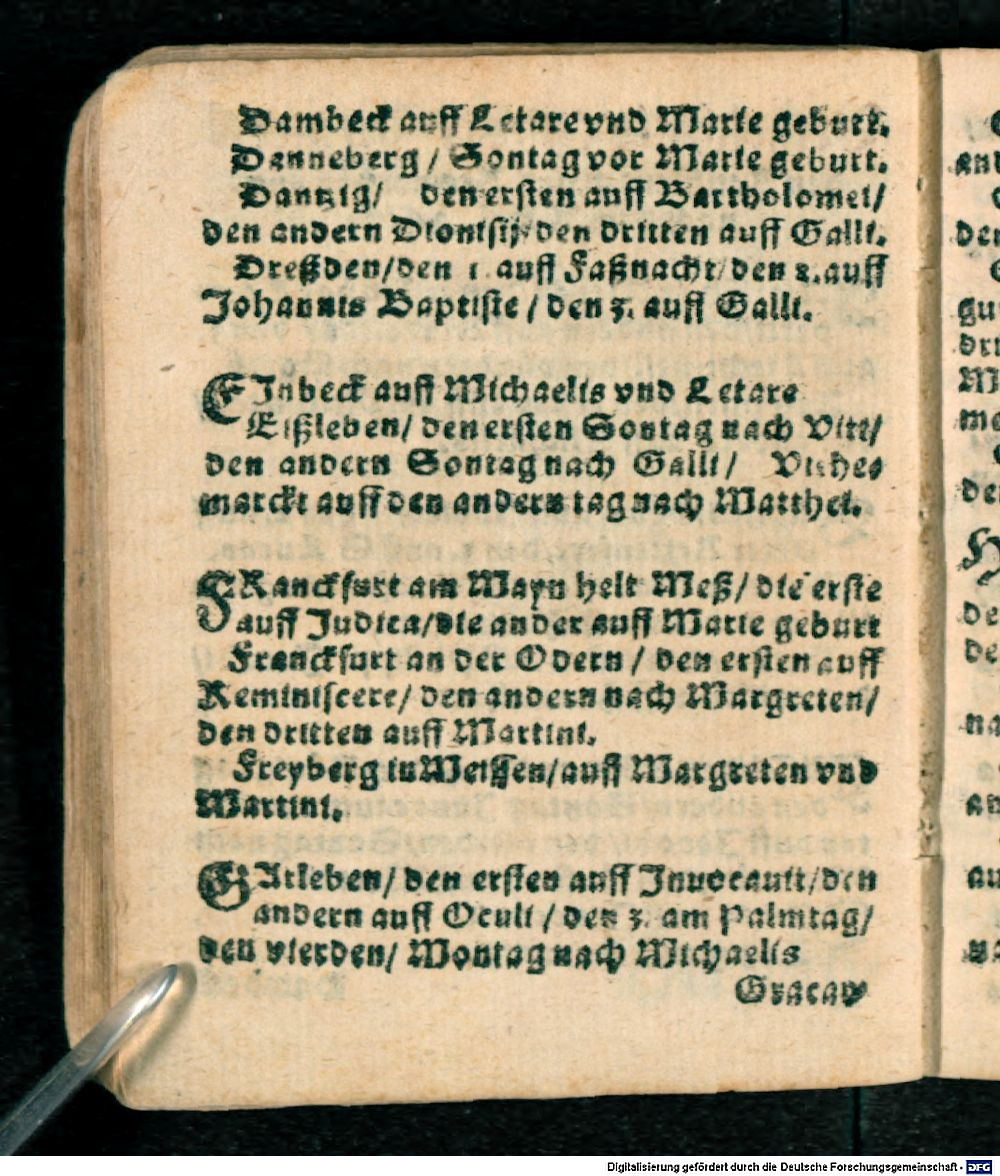 Dambeck auff Letare vnd Marie geburt.
Danneberg / Sontag vor Marie geburt.
Dantzig/ den ersten auff Bartholomei/
den andern Dionisij/den dritten auff Galli.
Dreßden/den 1. auff Faßnacht/den 2. auff
Johannis Baptiste / den 3. auff Galli.
EJnbeck auff Michaelis vnd Letare
Eißleben/ den ersten Sontag nach Viti/
den andern Sontag nach Galli/ Viehes
marckt auff den andern tag nach Matthei.
FRanckfurt am Mayn helt Meß/ die erste
auff Judica/die ander auff Marie geburt
Franckfurt an der Odern / den ersten auff
Reminiscere/ den andern nach Margreten/
den dritten auff Martini.
Freyberg in Meissen/auff Margreten vnd
Martini.
GAtleben/ den ersten auff Inuocauit/den
andern auff Oculi / den 3. am Palmtag/
den vierden/ Montag nach Michaelis
Gracaw
Digitalisierung gefördert durch die Deutsche Forschungsgemeinschaft - DFG